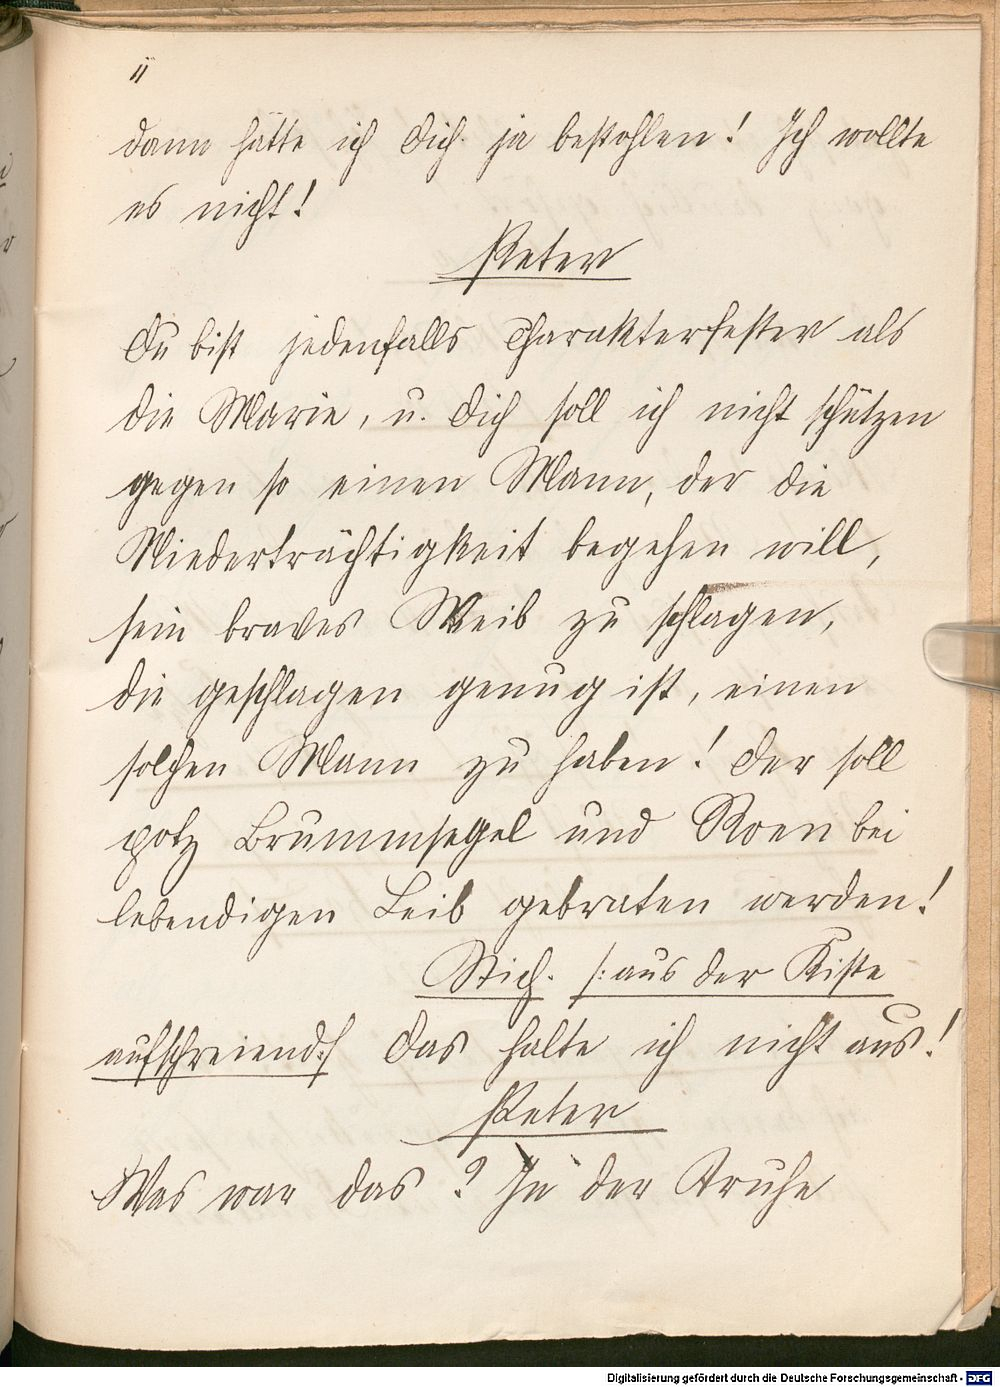 11
dann hätte ich Dich ja bestohlen! Ich wollte
es nicht!
Peter
Du bist jedenfalls charakterfester als
die Marie, u. Dich soll ich nicht schützen
gegen so einen Mann, der die
Niederträchtigkeit begehen will,
sein braves Weib zu schlagen,
die geschlagen genug ist, einen
solchen Mann zu haben! Der soll
potz Brummsegel und Roen bei
lebendigen Leib gebraten werden!
Stich. /: aus der Kiste
aufschreiend :/ Das halte ich nicht aus!
Peter
Was war das? In der Truhe
Digitalisierung gefördert durch die Deutsche Forschungsgemeinschaft - DFG